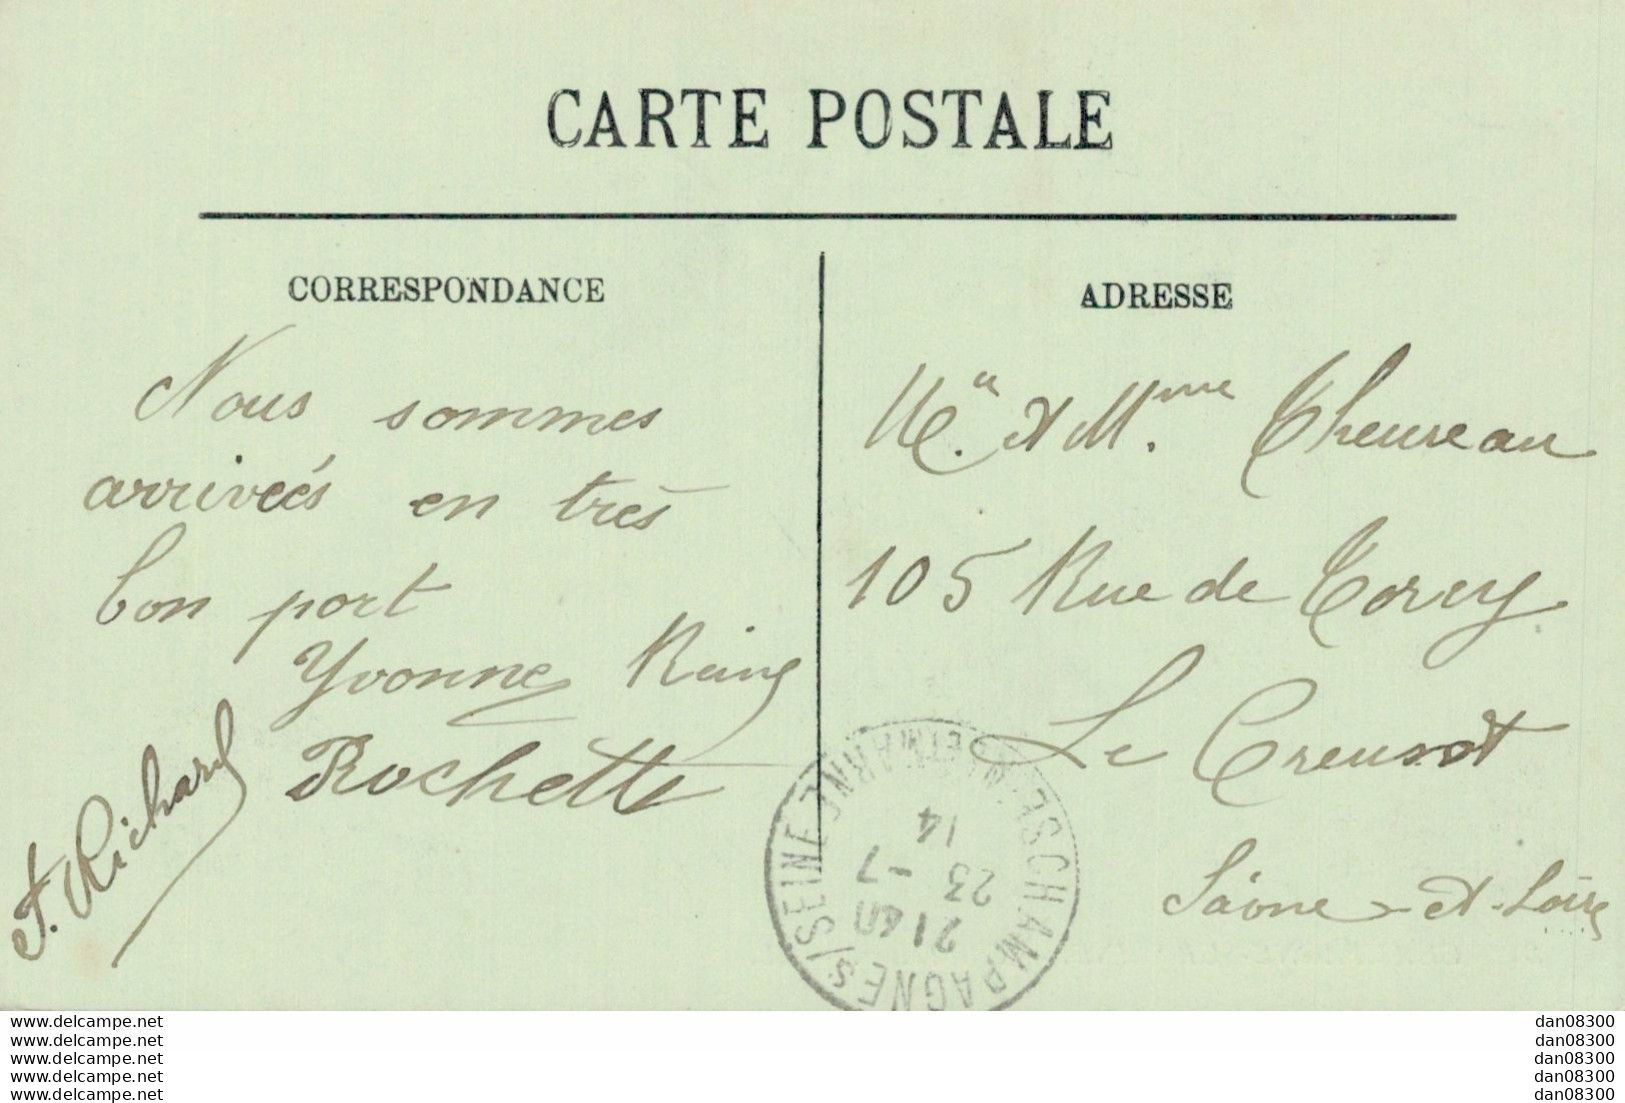 CARTE POSTALE
CORRESPONDANCE
Nous sommes
arrivées en très
bon port
Yvonne
Rochette
F. Richard
ADRESSE
Mr. et Mme Theureau
105 Rue de Torcy
Le Creusot
Saône-et-Loire
CHAMPAGNES/SEINE
21 40
23 - 7
14
www.delcampe.net
www.delcampe.net
www.delcampe.net
www.delcampe.net
www.delcampe.net
dan08300
dan08300
dan08300
dan08300
dan08300